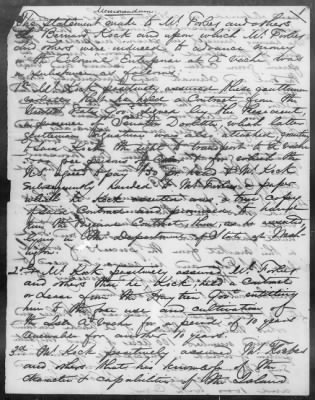 Memorandum
The statement made to Mr. Forbes and others
by Bernard Kock and upon which Mr. Forbes
and others were induced to advance money
in the Colonial Enterprise at A'vache was
in substance as follows:
1st Mr. Kock positively assured these gentlemen
that he held a Contract from the
United States signed by the President
which latter
gentlemen was also attached, granting
to said Kock the right to transport to A'vache
5000 persons of color for which the
U.S. agreed to pay $50 per head & Mr. Kock
subsequently handed to Mr. Forbes a paper
which he Kock asserted was a true copy
of said Contract and promised to
him the original Contract, then, as he asserted
lying in the Department of State at Wash-
ington.
2nd Mr. Kock positively assured Mr. Forbes
and others that he, Kock, held a contract
or lease from the Haytien Govt. entitling
him to the sole use and cultivation of
the Isle A'vache for a period of 10 years
renewable for another 10 years.
3rd Mr. Kock positively assured Mr. Forbes
and others that his knowledge of the
character & capabilities of the Island